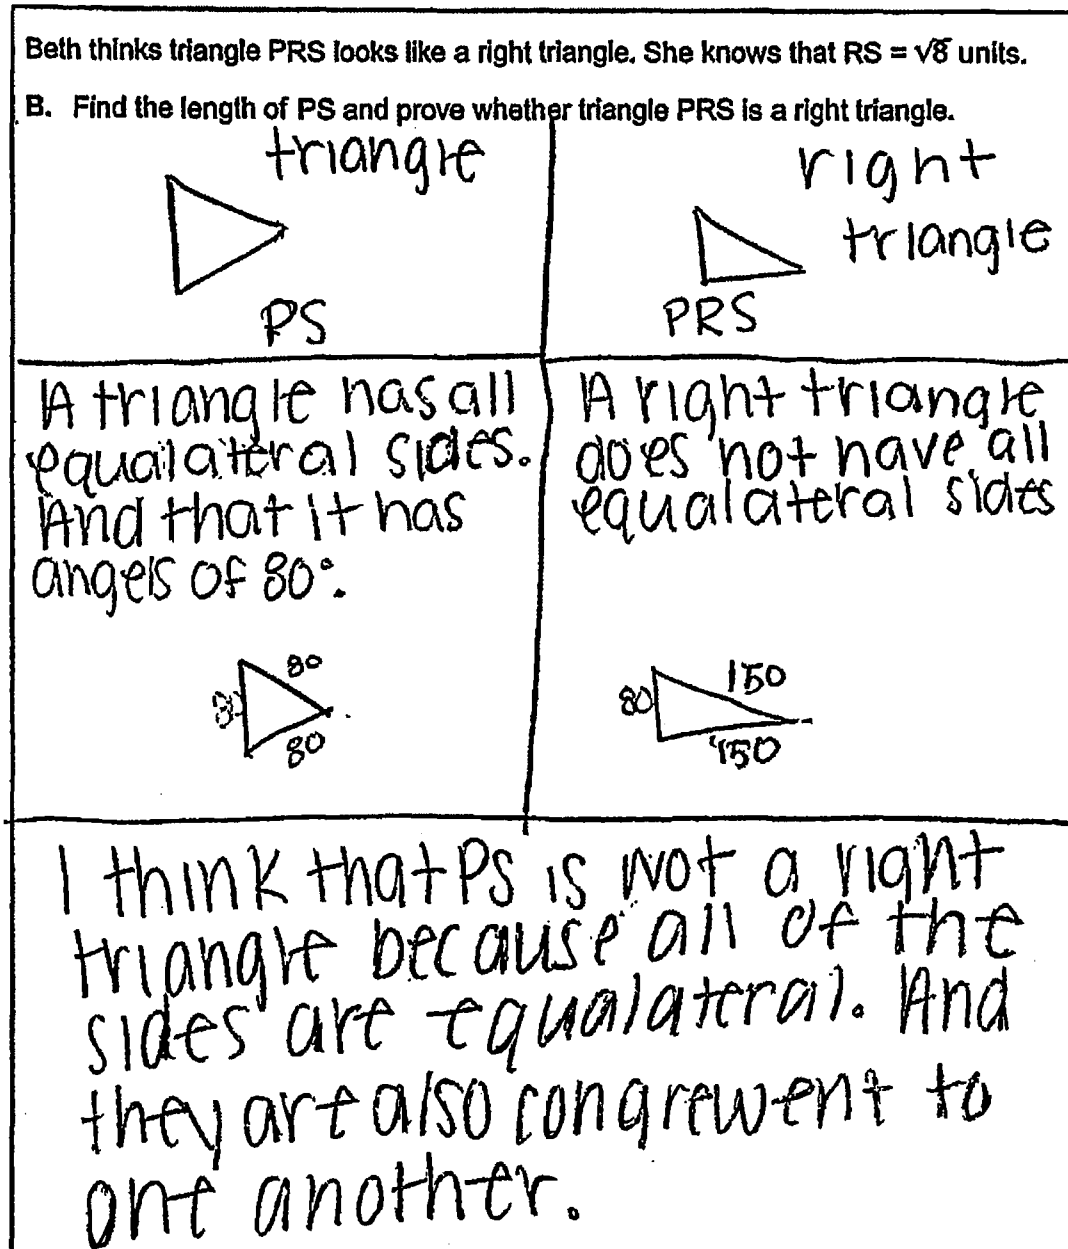 Beth thinks triangle PRS looks like a right triangle. She knows that RS = √8 units.
B. Find the length of PS and prove whether triangle PRS is a right triangle.
triangle
PS
right
triangle
PRS
A triangle has all
equalateral sides.
And that it has
angels of 80°.
80
80
80
A right triangle
does not have all
equalateral sides
80
150
150
I think that PS is not a right
triangle because all of the
sides are equalateral. And
they are also congrewent to
one another.